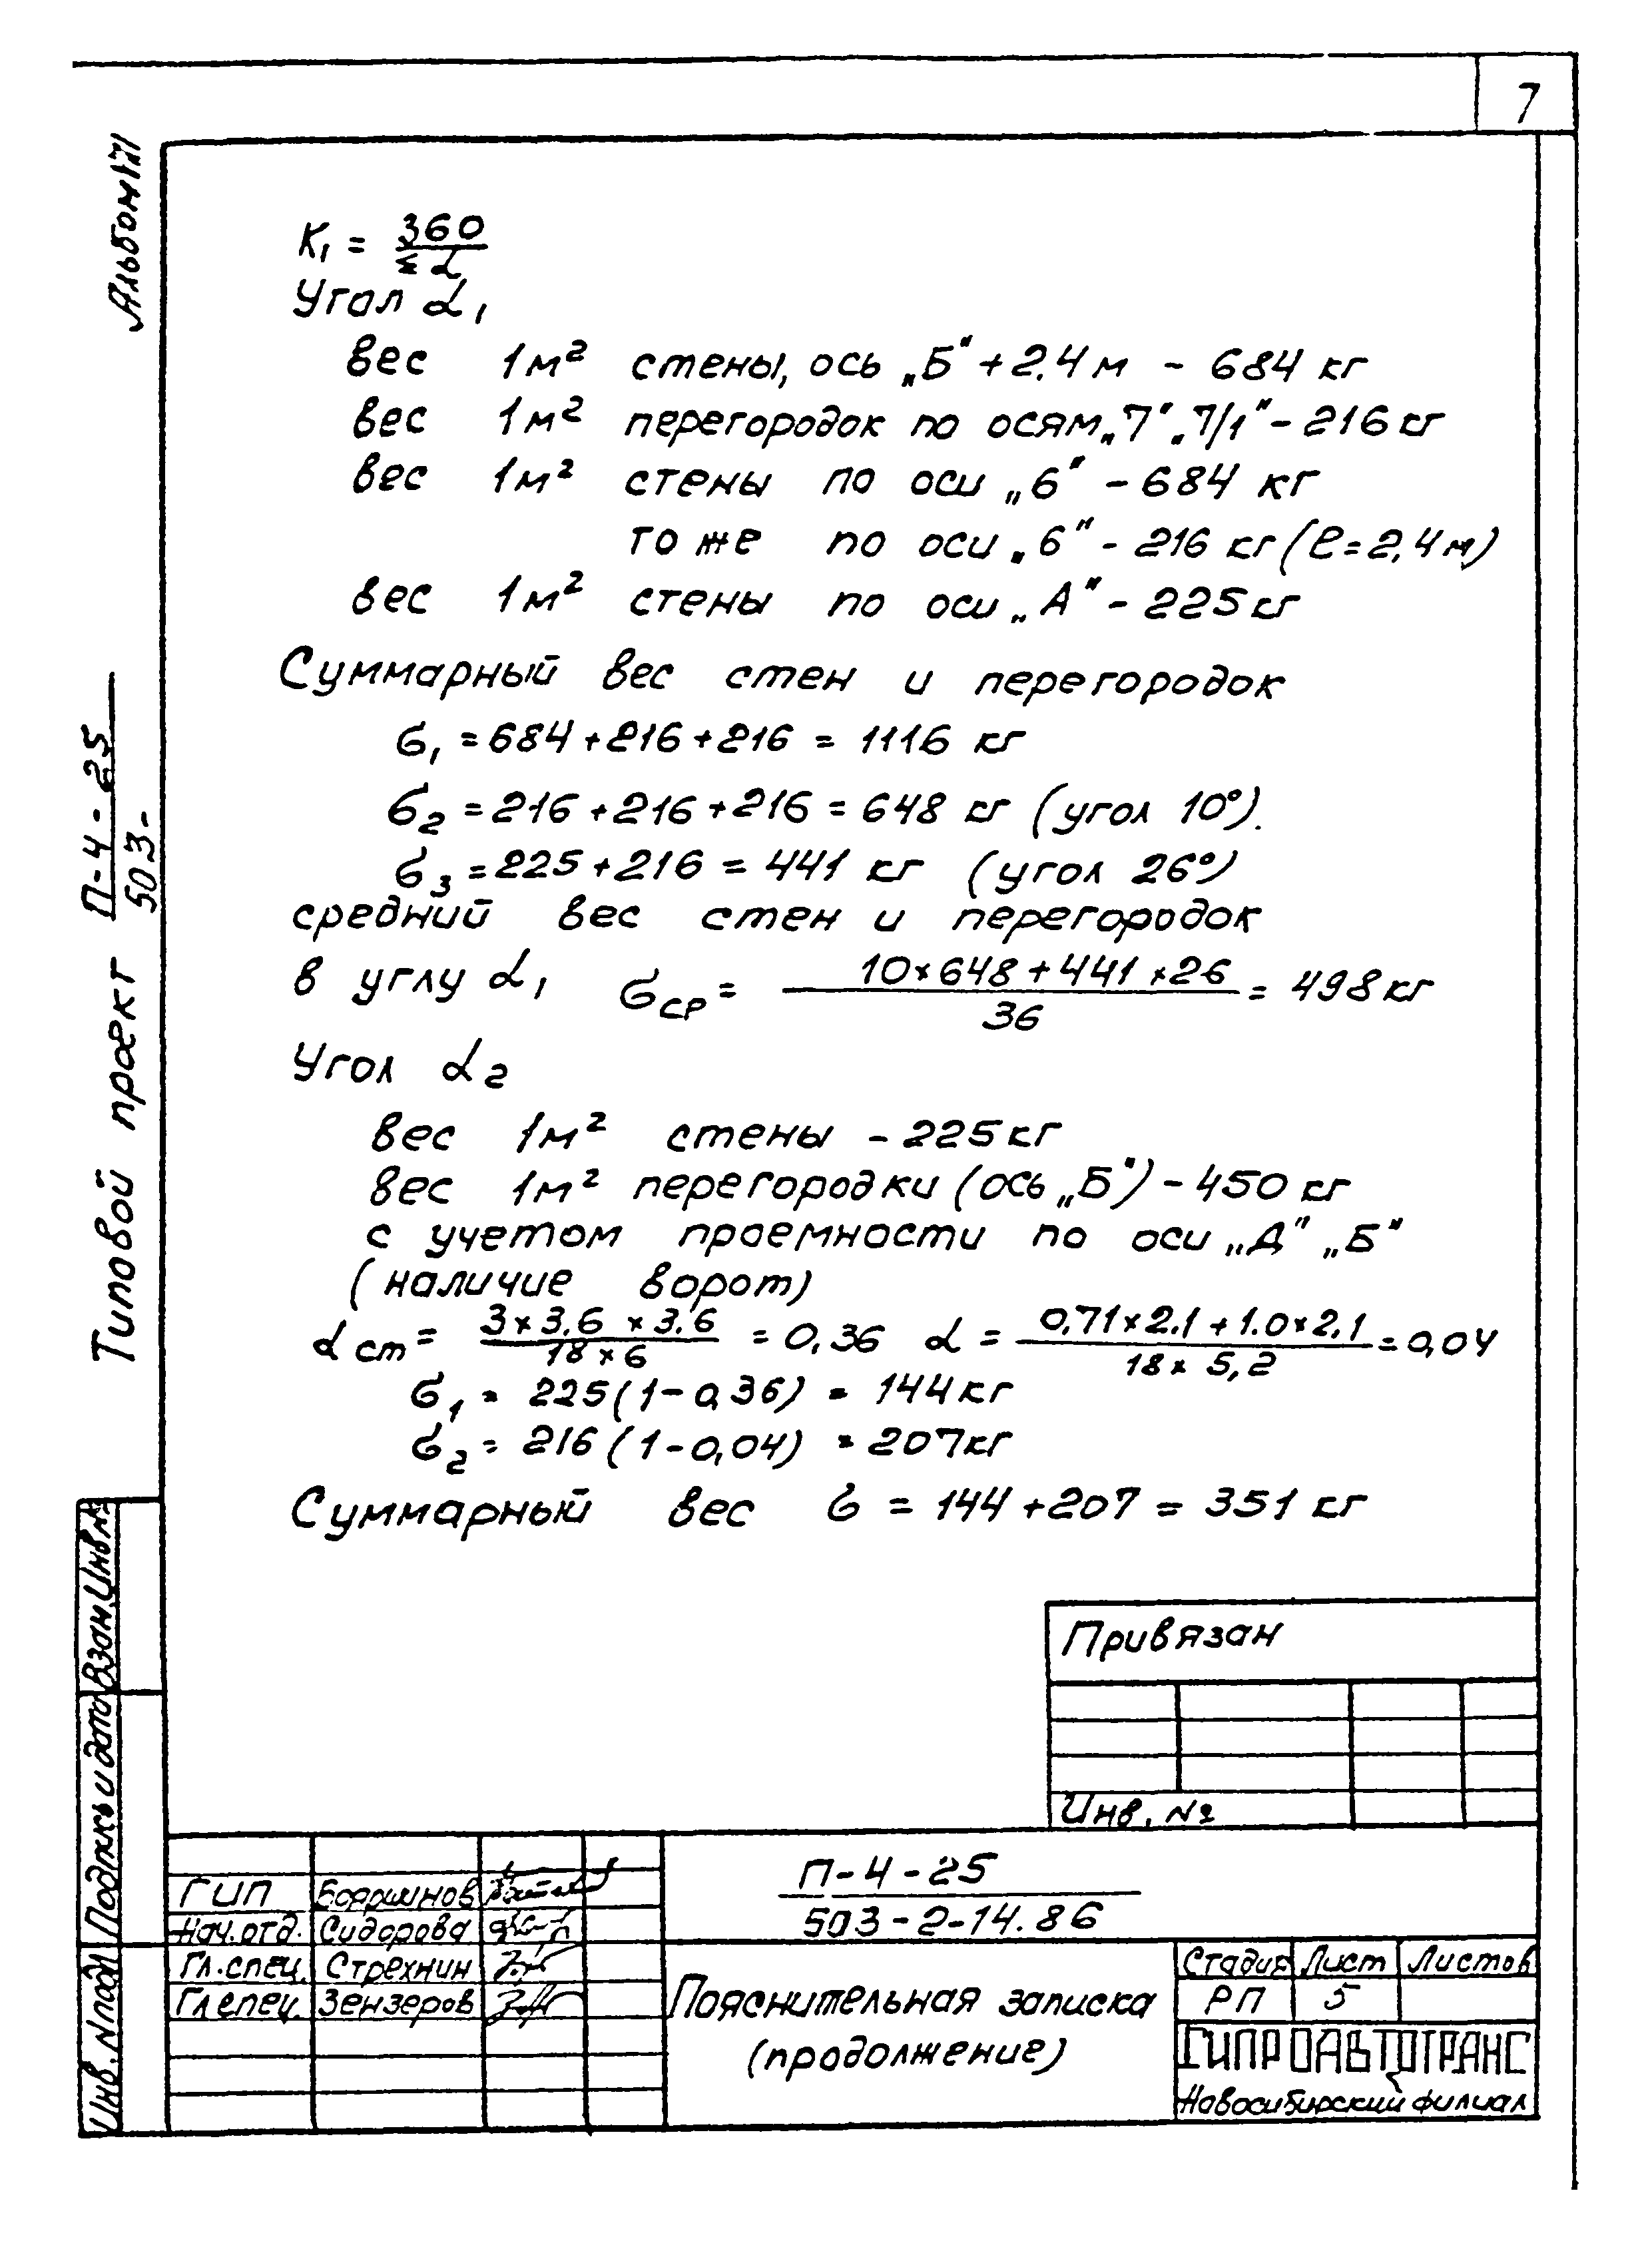 7
Альбом IVI
Типовой проект П-4-25
503-
K₁ = 360 / ≤ α
Угал α₁
вес 1м² стены, ось „Б" + 2.4 м - 684 кг
вес 1м² перегородок по осям „7" „7/1" - 216 кг
вес 1м² стены по оси „6" - 684 кг
тоже по оси „6" - 216 кг (ℓ=2,4м)
вес 1м² стены по оси „А" - 225 кг
Суммарный вес стен и перегородок
G₁ = 684 + 216 + 216 = 1116 кг
G₂ = 216 + 216 + 216 = 648 кг (угол 10°).
G₃ = 225 + 216 = 441 кг (угол 26°)
средний вес стен и перегородок
в углу α₁ Gср = (10×648 + 441×26) / 36 = 498 кг
Угол α₂
вес 1м² стены - 225 кг
вес 1м² перегородки (ось „Б") - 450 кг
с учетом проемности по оси „Д" „Б"
(наличие ворот)
αст = (3×3.6×3.6) / (18×6) = 0,36 α = (0,71×2.1 + 1.0×2,1) / (18×5,2) = 0,04
G₁ = 225(1-0,36) = 144 кг
G₂ = 216(1-0,04) = 207 кг
Суммарный вес G = 144 + 207 = 351 кг
Привязан
Инв. №
Взам. Инв. №
Подпись и дата
Инв. № подл
П-4-25
503-2-14.86
ГИП Бояршинов
Нач. отд. Сидорова
Гл. спец. Стрехнин
Гл спец. Зензеров
Пояснительная записка
(продолжение)
Стадия Лист Листов
РП 5
ГИПРОАВТОТРАНС
Новосибирский филиал